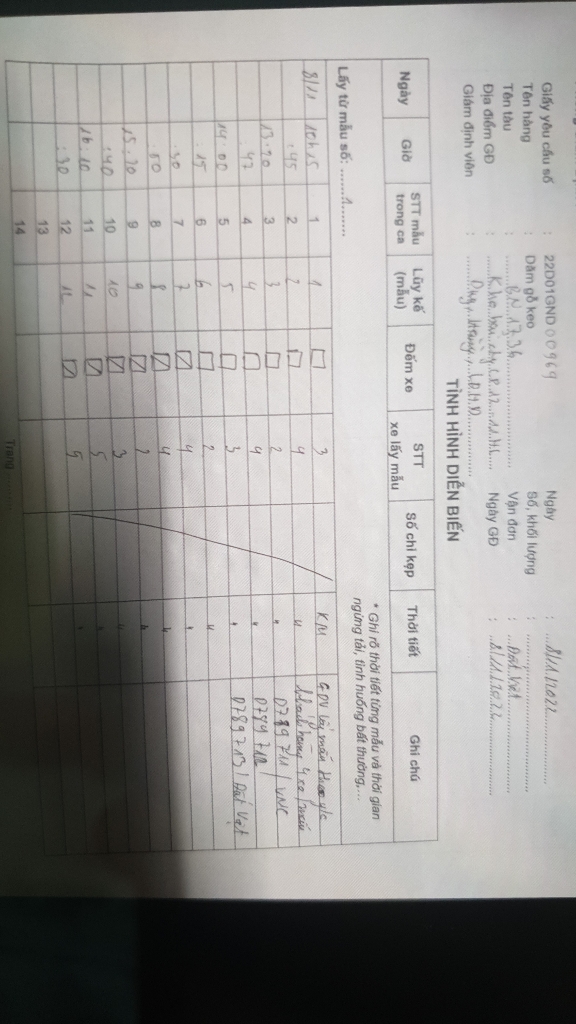 Giấy yêu cầu số : 22D01GND00969 Ngày : 8/11/2022
Tên hàng : Dăm gỗ keo Số, khối lượng :
Tên tàu : Vận đơn : Đất Việt
Địa điểm GĐ : Ngày GĐ : 8/11/2022
Giám định viên :
TÌNH HÌNH DIỄN BIẾN
* Ghi rõ thời tiết từng mẫu và thời gian
ngừng tải, tình huống bất thường,...
Lấy từ mẫu số: 1
Ngày Giờ STT mẫu trong ca Lũy kế (mẫu) Đếm xe STT xe lấy mẫu Số chì kẹp Thời tiết Ghi chú
8/11 10h15 1 1 3 KM GĐV lấy mẫu theo y/c
:45 2 2 4 "
13:20 3 3 2 " 0789711/VNC
4 4 4 0789712
14:00 5 5 3 " 0789713/Đất Việt
:15 6 6 2 "
:30 7 7 4 "
:50 8 8 4 "
15:20 9 9 2 "
:40 10 10 3 "
16:10 11 11 5
:30 12 12 5 "
13
14
Trang